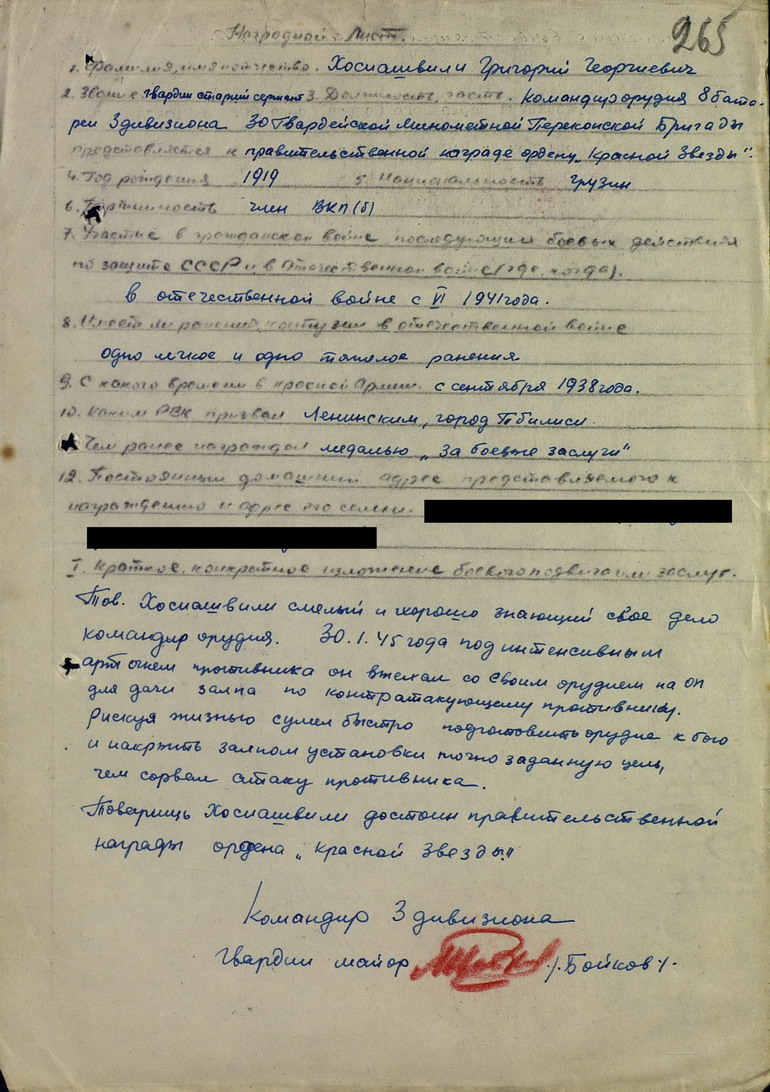 Наградной Лист.
265
1. Фамилия, имя и отчество. Хосиашвили Григорий Георгиевич
2. Звание гвардии старший сержант 3. Должность, часть. Командир орудия 8 бата-
реи 3 дивизиона 30 Гвардейской Минометной Перекопской Бригады
представляется к правительственной награде ордену „Красной Звезды".
4. Год рождения 1919 5. Национальность грузин
6. Партийность член ВКП(б)
7. Участие в гражданской войне, последующих боевых действиях
по защите СССР и в Отечественной войне (где, когда).
в отечественной войне с VI 1941 года.
8. Имеет ли ранения, контузии в отечественной войне
одно легкое и одно тяжелое ранения
9. С какого времени в красной Армии с сентября 1938 года.
10. Каким РВК призван Ленинским, город Тбилиси.
Чем ранее награжден медалью „За боевые заслуги"
12. Постоянный домашний адрес представляемого к
награждению и адрес его семьи.
I. Краткое, конкретное изложение боевого подвига или заслуг.
Тов. Хосиашвили смелый и хорошо знающий свое дело
командир орудия. 30.1.45 года под интенсивным
артогнем противника он въехал со своим орудием на ОП
для дачи залпа по контратакующему противнику.
Рискуя жизнью сумел быстро подготовить орудие к бою
и накрыть залпом установки точно заданную цель,
чем сорвал атаку противника.
Товарищь Хосиашвили достоин правительственной
награды ордена „Красной Звезды".
Командир 3 дивизиона
Гвардии майор /.Бойков/.